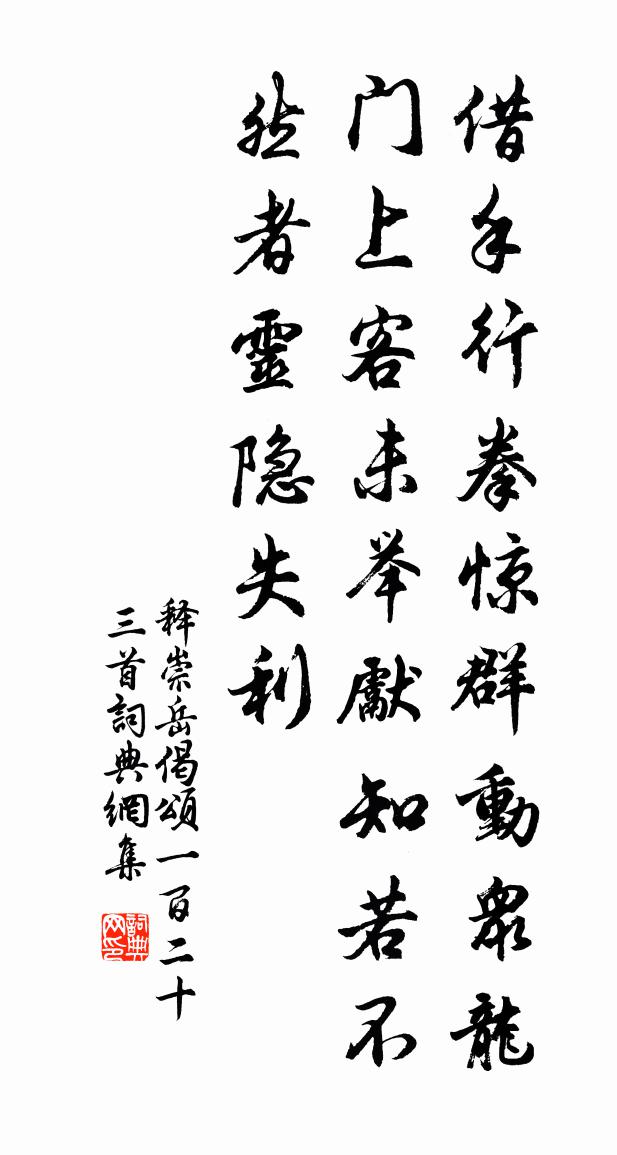 借手行拳惊群動衆龍
门上客未举獻知若不
然者靈隐失利
释崇岳偈頌一百二十
三首詞典網集
詞典网印